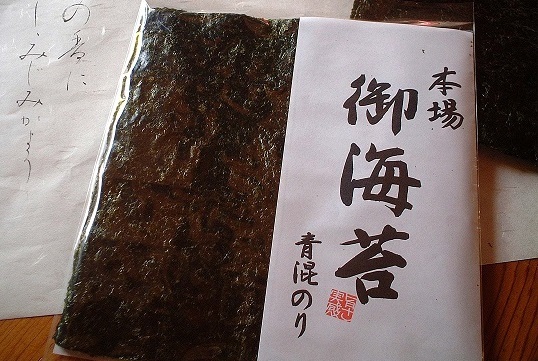 本場
御海苔
青混のり
の香に
しみじみかよう